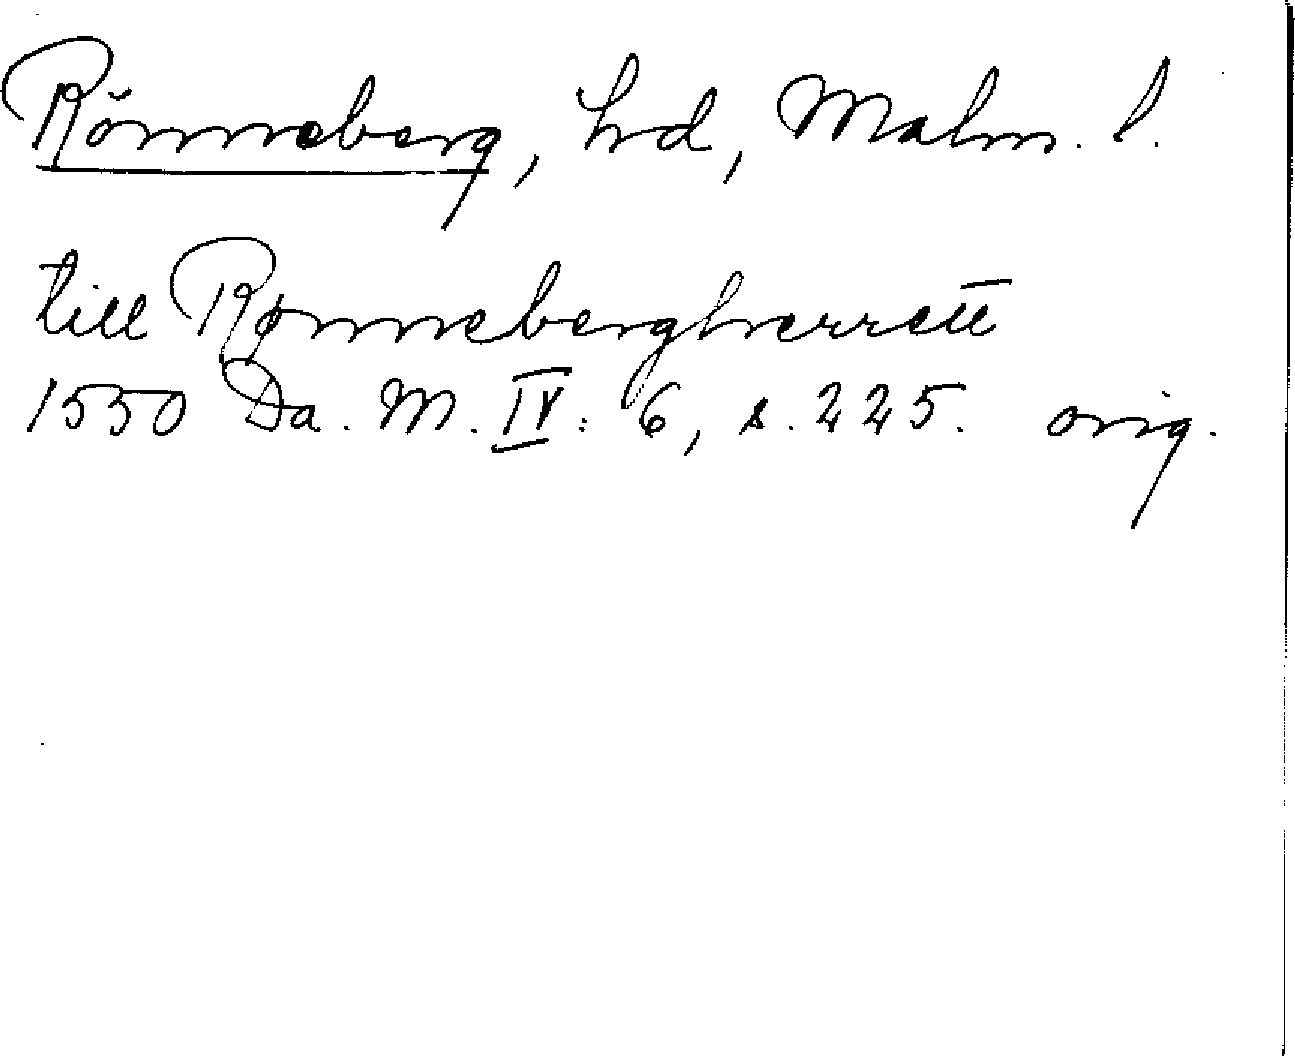 Rönneberg, hrd, Malm. l.
till Rønnebergherrett
1550 Da. M. IV: 6, s. 225. orig.